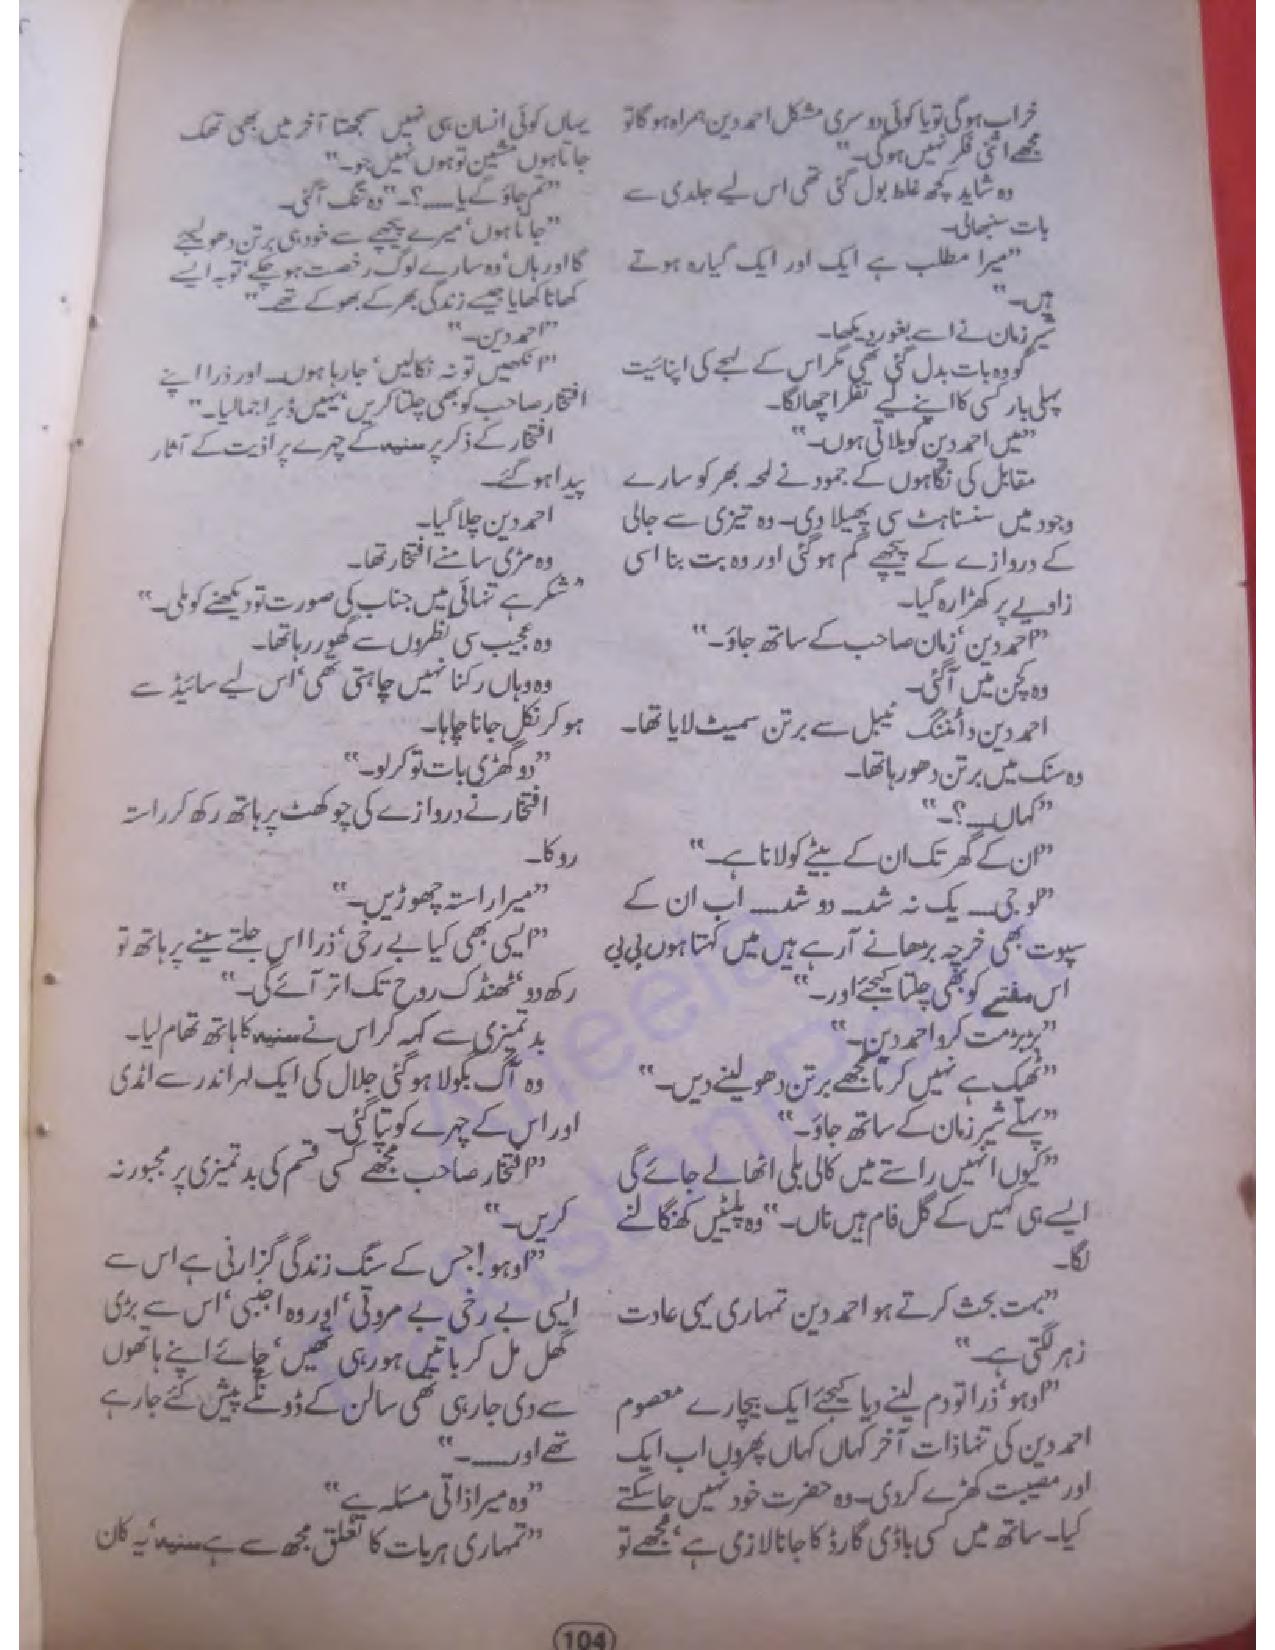 خراب ہوگی تو یا کوئی دوسری مشکل احمد دین ہمراہ ہوگا تو
مجھے اتنی فکر نہیں ہوگی۔“
وہ شاید کچھ غلط بول گئی تھی اس لیے جلدی سے
بات سنبھالی۔
”میرا مطلب ہے ایک اور ایک گیارہ ہوتے
ہیں۔“
شیر زمان نے اسے بغور دیکھا۔
گو وہ بات بدل گئی تھی مگر اس کے لہجے کی اپنائیت
پہلی بار کسی کا اپنے لیے تفکر اچھا لگا۔
”میں احمد دین کو بلاتی ہوں۔“
مقابل کی نگاہوں کے جمود نے لمحہ بھر کو سارے
وجود میں سنسناہٹ سی پھیلا دی۔ وہ تیزی سے جالی
کے دروازے کے پیچھے گم ہوگئی اور وہ بت بنا اسی
زاویے پر کھڑا رہ گیا۔
”احمد دین‘ زمان صاحب کے ساتھ جاؤ۔“
وہ کچن میں آگئی۔
احمد دین ڈائننگ ٹیبل سے برتن سمیٹ لایا تھا۔
وہ سنک میں برتن دھو رہا تھا۔
”کہاں۔۔۔؟۔“
”ان کے گھر تک ان کے بیٹے کو لانا ہے۔“
”لو جی۔۔۔ یک نہ شد۔۔۔ دو شد۔۔۔۔ اب ان کے
سپوت بھی خرچہ بڑھانے آ رہے ہیں میں کہتا ہوں بی بی
اس مفتے کو بھی چلتا کیجئے اور۔“
”بڑبڑ مت کرو احمد دین۔“
”ٹھیک ہے نہیں کرتا مجھے برتن دھو لینے دیں۔“
”پہلے شیر زمان کے ساتھ جاؤ۔“
”کیوں انہیں راستے میں کالی بلی اٹھا لے جائے گی
ایسے ہی کہیں کے گل فام ہیں ناں۔“ وہ پلیٹیں کھنگالنے
لگا۔
”بہت بحث کرتے ہو احمد دین تمہاری یہی عادت
زہر لگتی ہے۔“
”اوہو‘ ذرا تو دم لینے دیا کیجئے ایک بیچارے معصوم
احمد دین کی تنہا ذات آخر کہاں کہاں پھروں اب ایک
اور مصیبت کھڑے کردی۔ وہ حضرت خود نہیں جاسکتے
کیا۔ ساتھ میں کسی باڈی گارڈ کا جانا لازی ہے‘ مجھے تو
یہاں کوئی انسان ہی نہیں سمجھتا آخر میں بھی تھک
جاتا ہوں مشین تو ہوں نہیں جو۔“
”تم جاؤ گے یا۔۔۔۔؟۔“ وہ تنگ آگئی۔
”جاتا ہوں‘ میرے پیچھے سے خود ہی برتن دھو لیجئے
گا اور ہاں‘ وہ سارے لوگ رخصت ہو چکے‘ توبہ ایسے
کھانا کھایا جیسے زندگی بھر کے بھوکے تھے۔“
”احمد دین۔“
”آنکھیں تو نہ نکالیں‘ جا رہا ہوں۔۔۔ اور ذرا اپنے
افتخار صاحب کو بھی چلتا کریں‘ یہیں ڈیرا جما لیا۔“
افتخار کے ذکر پر سنیہ کے چہرے پر اذیت کے آثار
پیدا ہوگئے۔
احمد دین چلا گیا۔
وہ مڑی سامنے افتخار تھا۔
”شکر ہے تنہائی میں جناب کی صورت تو دیکھنے کو ملی۔“
وہ عجیب سی نظروں سے گھور رہا تھا۔
وہ وہاں رکنا نہیں چاہتی تھی‘ اس لیے سائیڈ سے
ہو کر نکل جانا چاہا۔
”دو گھڑی بات تو کر لو۔“
افتخار نے دروازے کی چوکھٹ پر ہاتھ رکھ کر راستہ
روکا۔
”میرا راستہ چھوڑیں۔“
”ایسی بھی کیا بے رخی‘ ذرا اس جلتے سینے پر ہاتھ تو
رکھ دو‘ ٹھنڈک روح تک اتر آئے گی۔“
بدتمیزی سے کہہ کر اس نے سنیہ کا ہاتھ تھام لیا۔
وہ آگ بگولا ہوگئی جلال کی ایک لہر اندر سے امڈی
اور اس کے چہرے کو تپا گئی۔
”افتخار صاحب مجھے کسی قسم کی بدتمیزی پر مجبور نہ
کریں۔“
”اوہو! جس کے سنگ زندگی گزارنی ہے اس سے
ایسی بے رخی بے مروتی‘ اور وہ اجنبی‘ اس سے بڑی
گھل مل کر باتیں ہو رہی تھیں‘ چائے اپنے ہاتھوں
سے دی جا رہی تھی سالن کے ڈونگے پیش کئے جا رہے
تھے اور۔۔۔۔۔“
”وہ میرا ذاتی مسئلہ ہے“
”تمہاری ہر بات کا تعلق مجھ سے ہے سنیہ‘ یہ کان
104